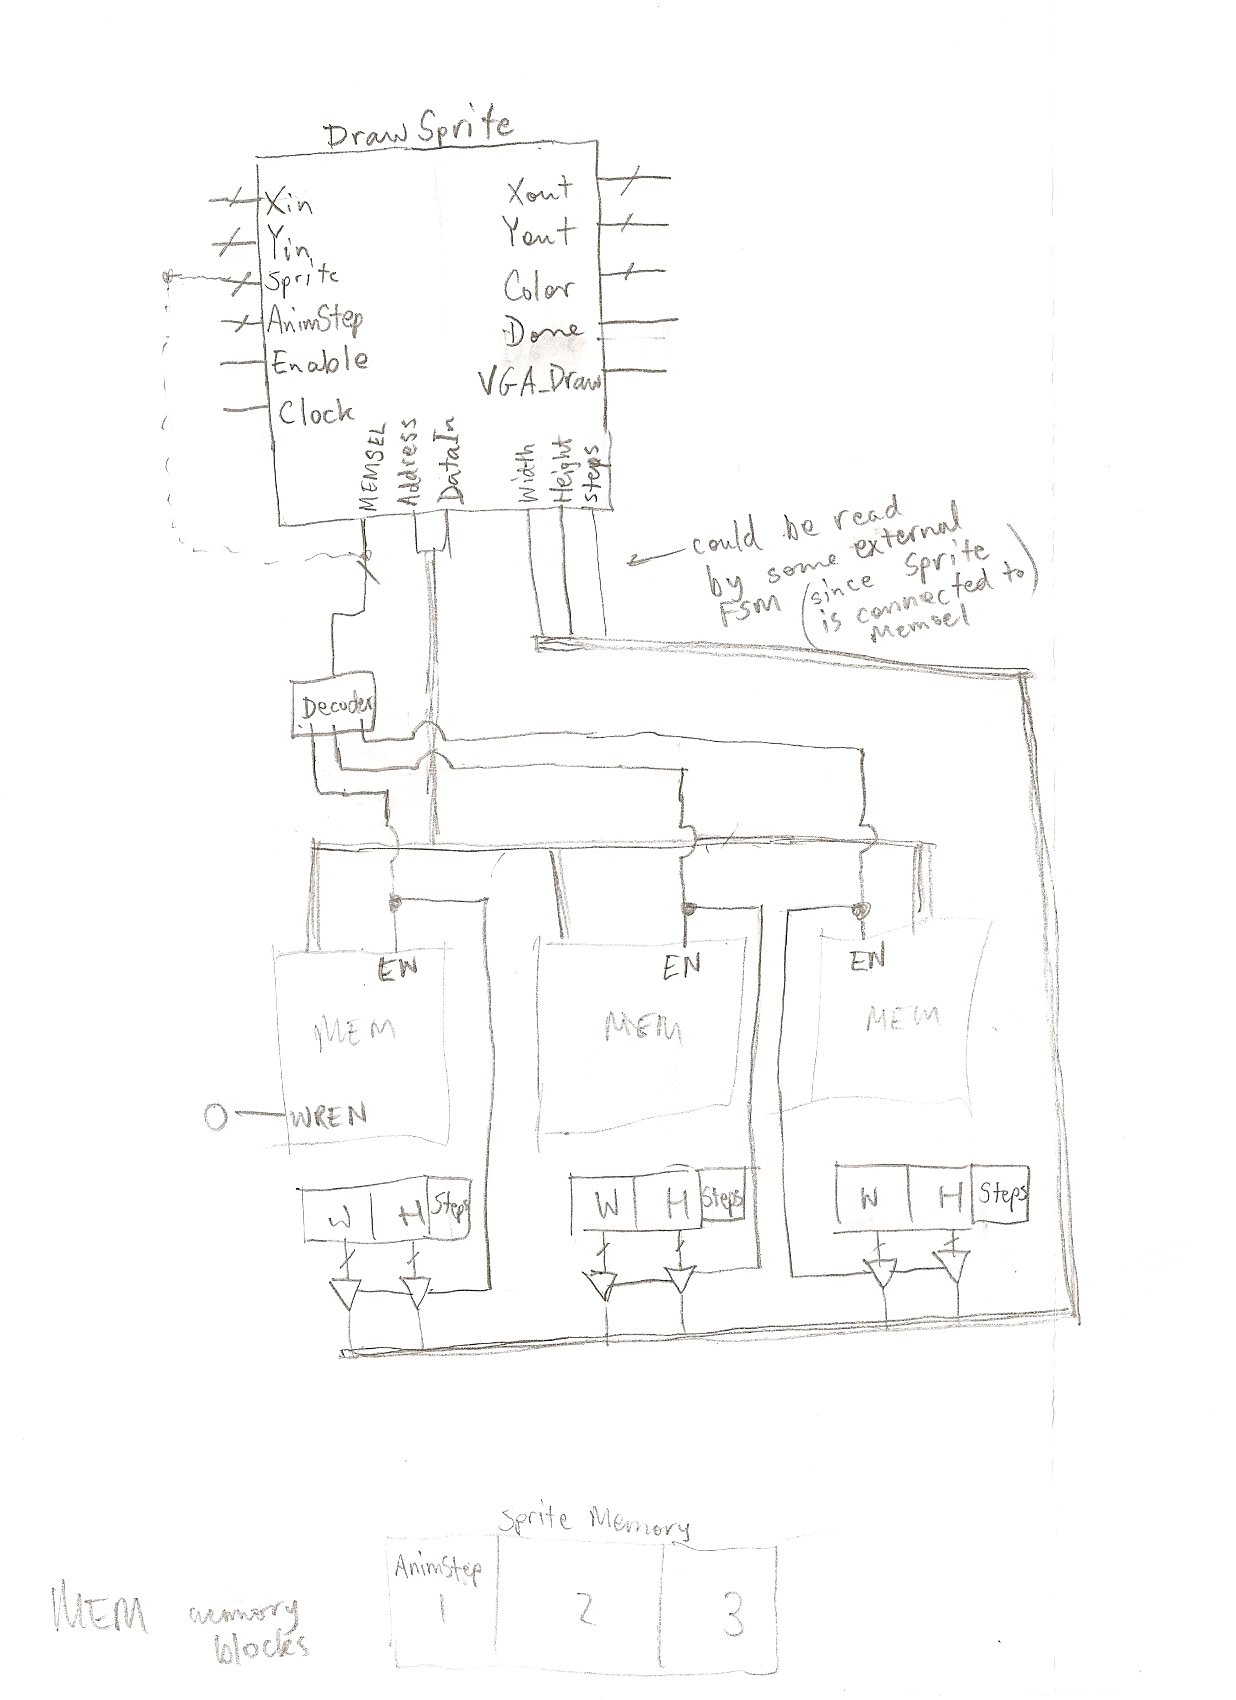 Draw Sprite
Xin
Yin
Sprite
AnimStep
Enable
Clock
Xout
Yout
Color
Done
VGA_Draw
MEMSEL
Address
DataIn
Width
Height
Steps
could be read
by some external
FSM (since Sprite
is connected to)
Memsel
Decoder
EN
EN
EN
MEM
MEM
MEM
0
WREN
W H Steps
W H Steps
W H Steps
Sprite Memory
AnimStep
1 2 3
MEM memory
blocks